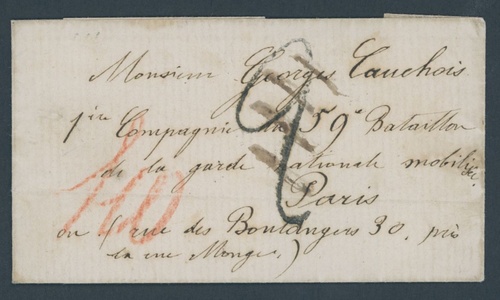 Monsieur Georges Cauchois
1ère Compagnie du 59e Bataillon
de la garde nationale mobilisée.
Paris
ou (rue des Boulangers 30, près
la rue Monge.)
2
40